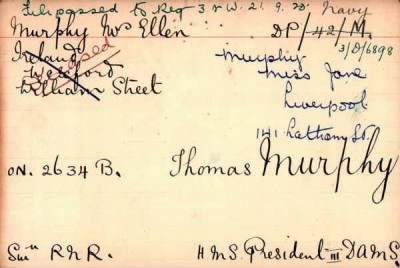 File passed to Reg 3 & W. 21. 9. 20. Navy
Murphy Mrs Ellen DP/42/M.
3/D/6898
Ireland
Wexford
William Street
Murphy
Miss Jane
Liverpool
141 Lathom St.
ON. 2634 B. Thomas Murphy
Smn RNR. HMS. President III DAMS.